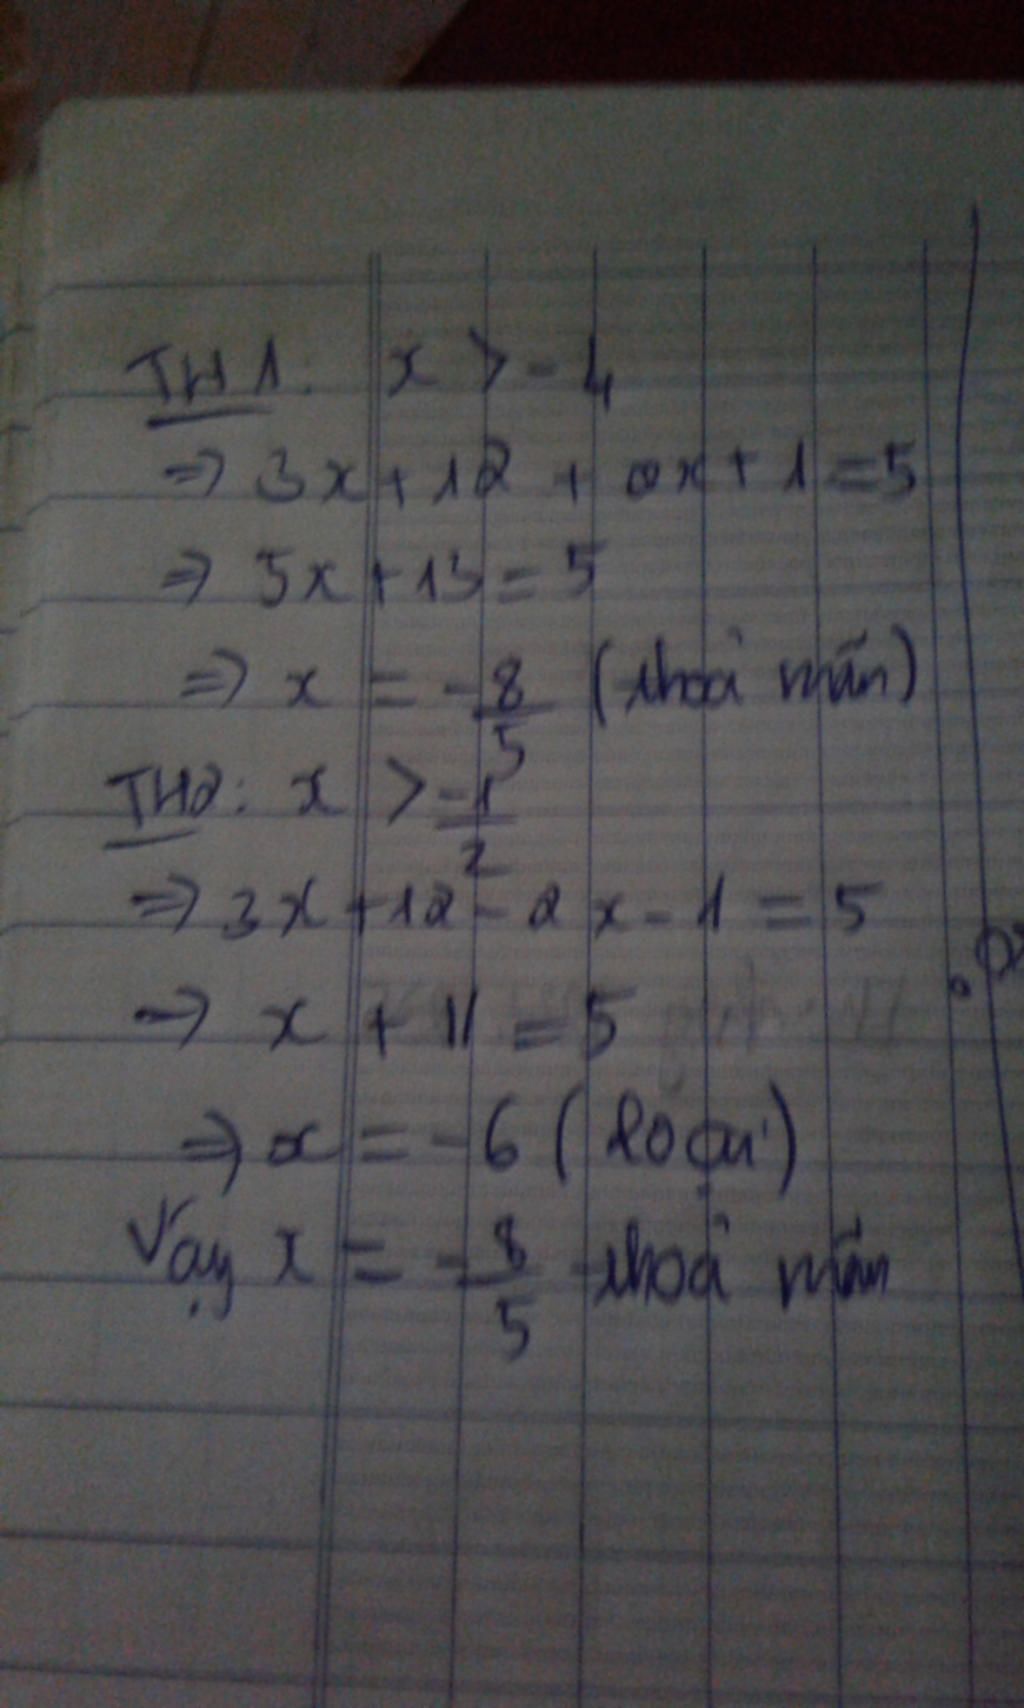 TH1: x > -4
=> 3x + 12 + 2x + 1 = 5
=> 5x + 13 = 5
=> x = -8/5 (thoả mãn)
TH2: x > -1/2
=> 3x + 12 - 2x - 1 = 5
=> x + 11 = 5
=> x = -6 (loại)
Vậy x = -8/5 thoả mãn